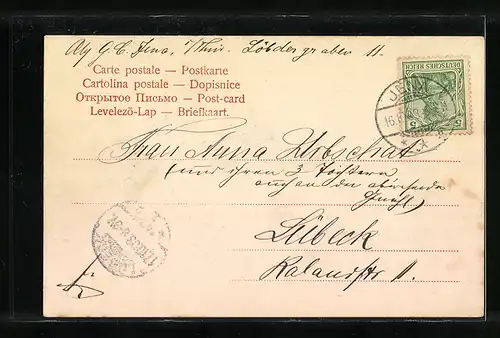 Abs G. C. Jena, Thür. Löbdergraben 11.
Carte postale — Postkarte
Cartolina postale — Dopisnice
Открытое Письмо — Post-card
Levelező-Lap — Briefkaart.
DEUTSCHES REICH
5 5
JENA
16
Frau Anna Urbschat
(und ihren 3 Töchtern
auch an der
Lübeck
Kalandstr 11.
LÜBECK